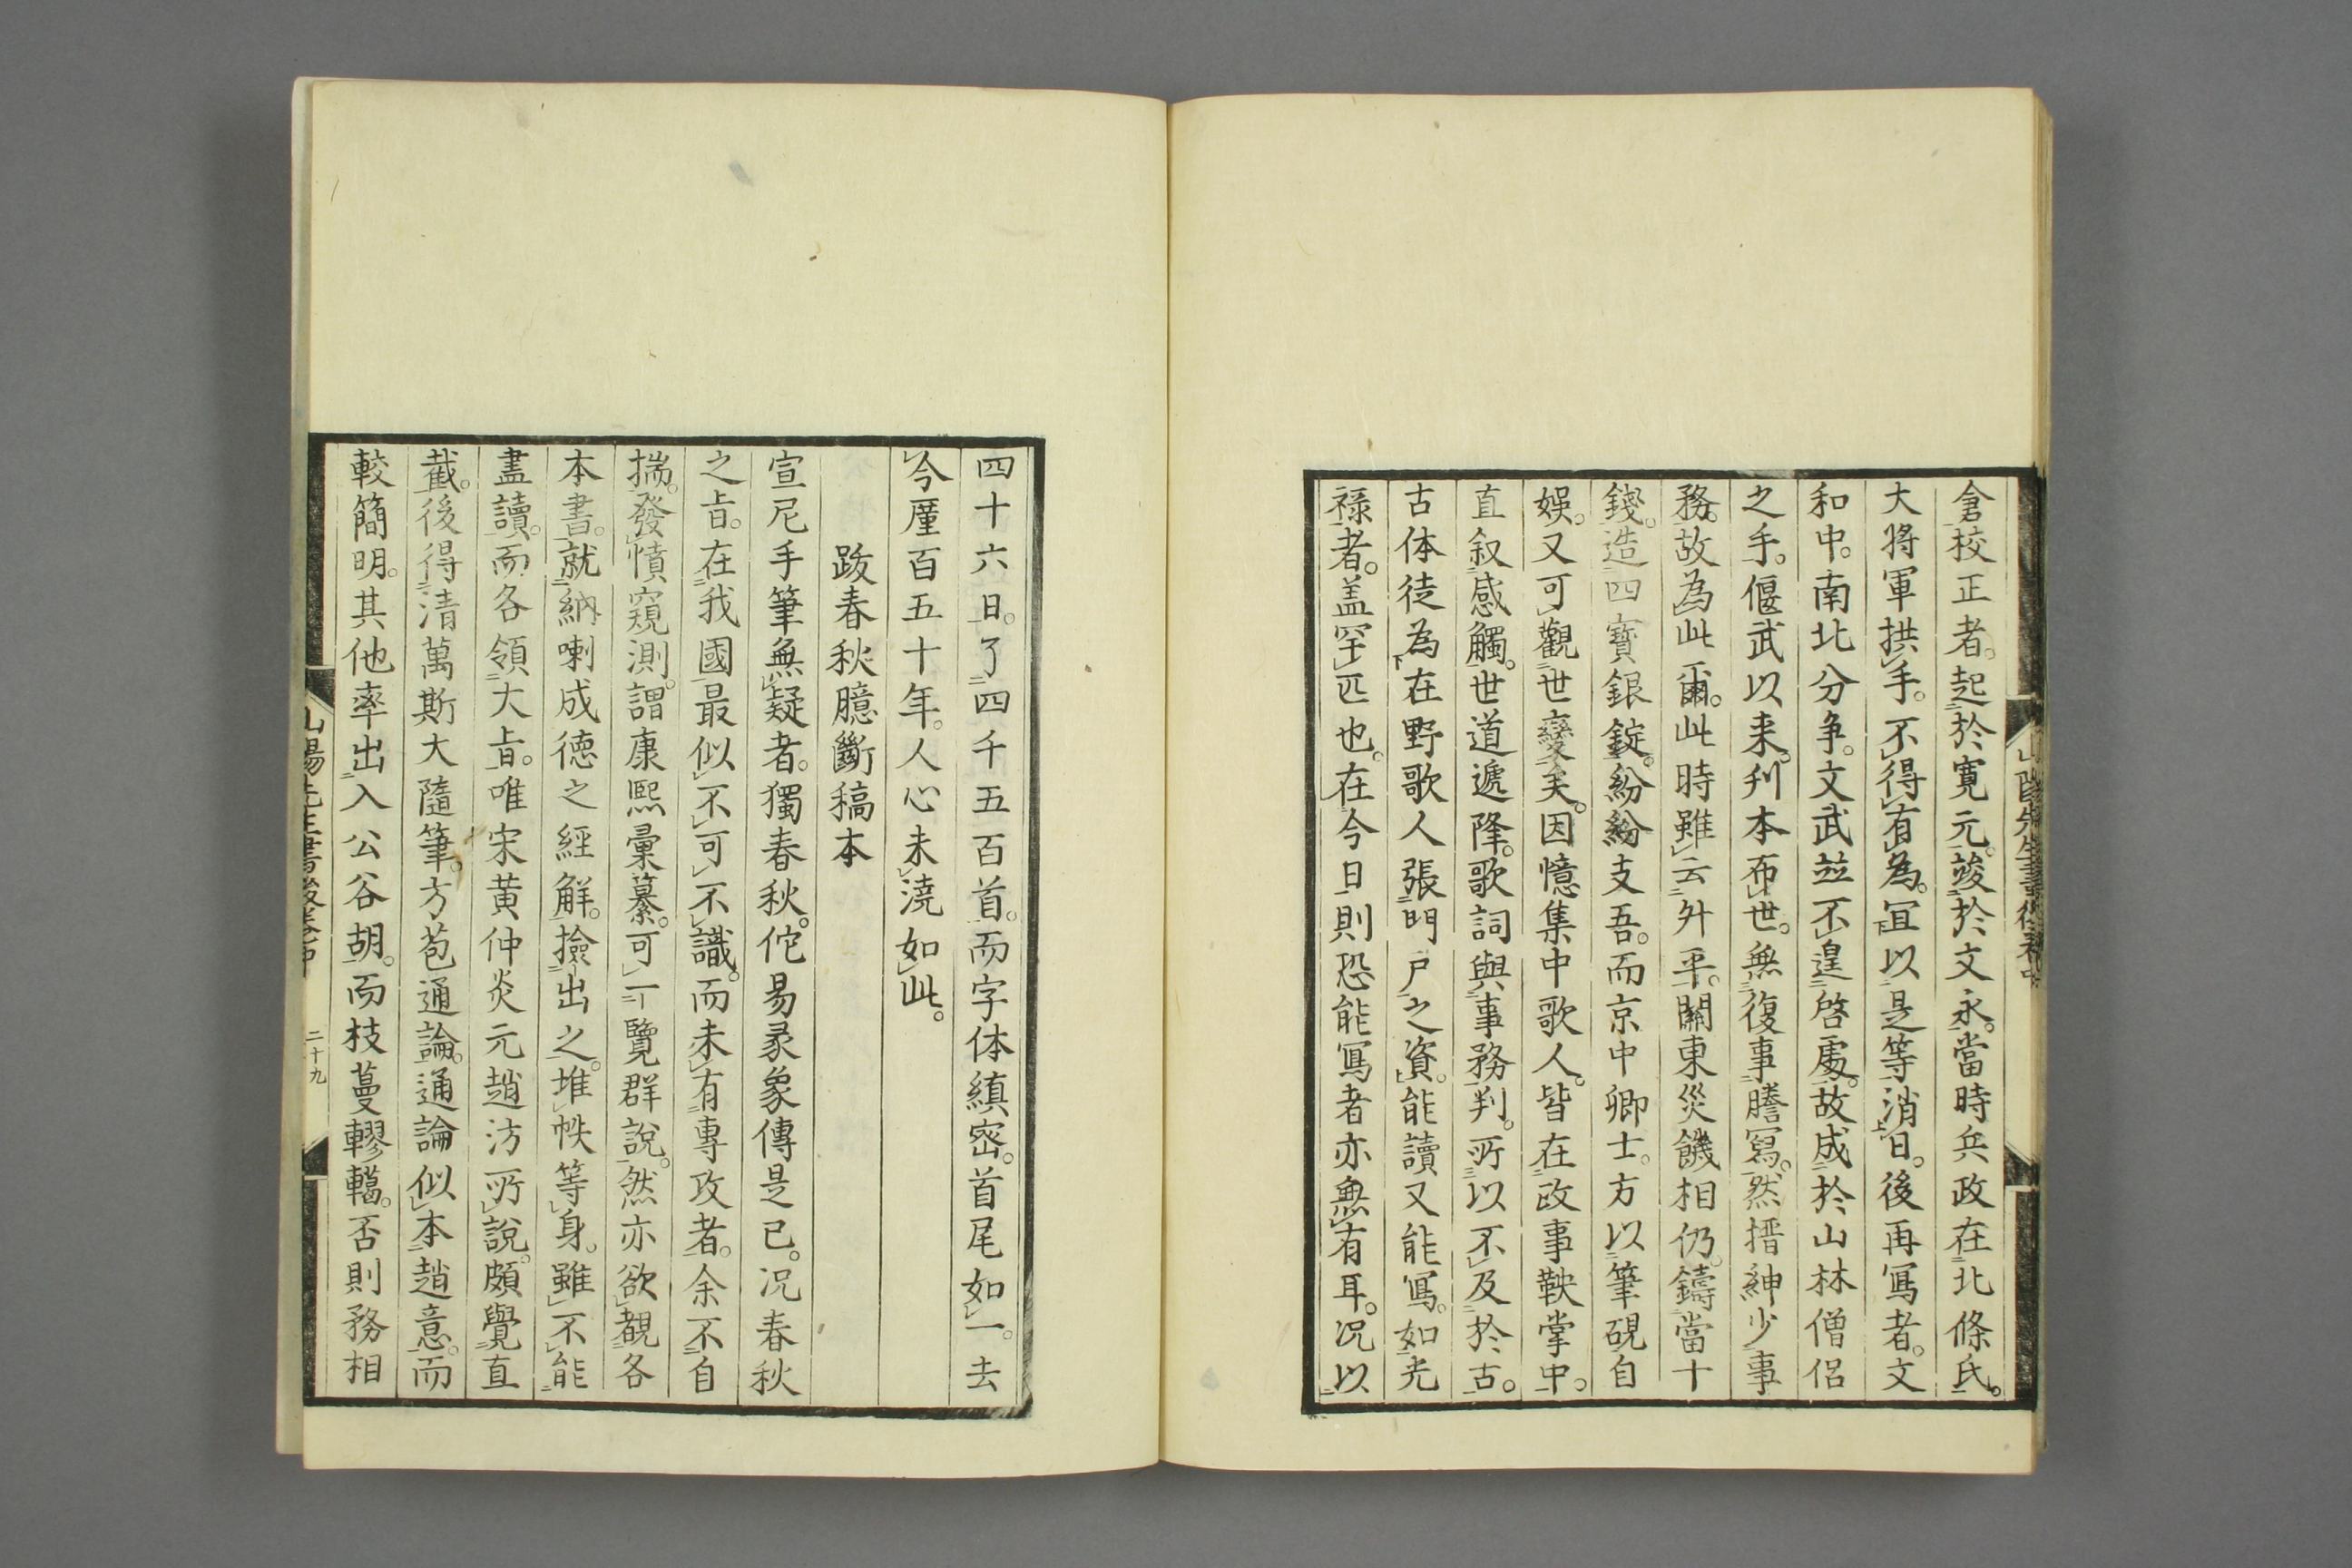 倉校正者。起於寛元。竣於文永。當時兵政在北條氏。
大将軍拱手。不得有為。冝以是等消日。後再冩者。文
和中。南北分争。文武竝不遑啓處。故成於山林僧侶
之手。偃武以来。刋本布世。無復事謄冩。然搢紳少事
務。故為此爾。此時雖云外平。關東災饑相仍。鑄當十
錢。造四寳銀錠。紛紛支吾。而京中卿士。方以筆硯自
娯。又可觀世變矣。因憶集中歌人。皆在政事鞅掌中。
直叙感觸。世道遞降。歌詞與事務判。所以不及於古。
古体徒為在野歌人張門戸之資。能讀又能冩。如光
禄者。盖罕匹也。在今日則恐能冩者亦無有耳。况以
山陽先生書後卷中
四十六日。了四千五百首。而字体縝密。首尾如一。去
今厪百五十年。人心未澆如此。
跋春秋臆斷稿本
宣尼手筆無疑者。獨春秋。佗易彖象傳是已。况春秋
之㫖。在我國最似不可不識。而未有專攻者。余不自
揣。發憤窺測。謂康熙彙纂。可一覽群說。然亦欲覩各
本書。就納喇成德之經解。撿出之。堆帙等身。雖不能
盡讀。而各領大㫖。唯宋黄仲炎元趙汸所說。頗覺直
截。後得清萬斯大隨筆。方苞通論。通論似本趙意。而
較簡明。其他率出入公谷胡。而枝蔓轇轕。否則務相
山陽先生書後卷中
二十九